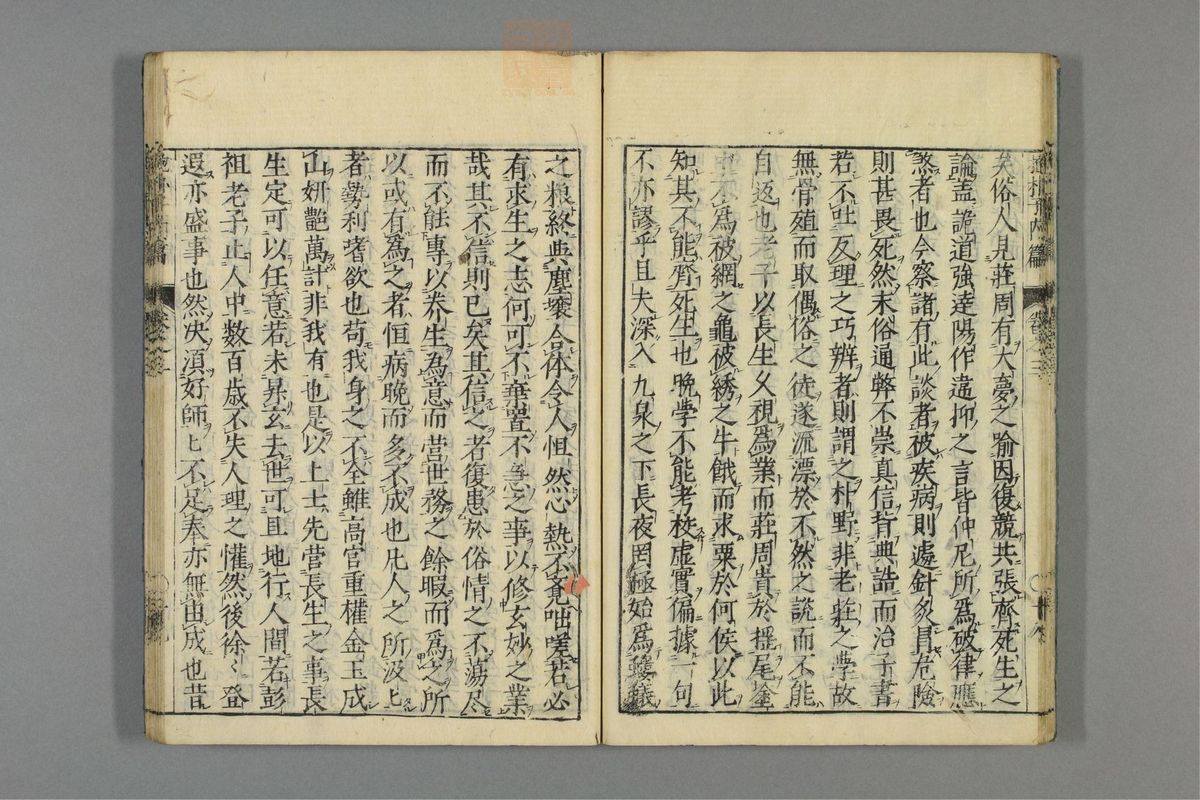 矣俗人見莊周有大夢之喻因復競共張齊死生之
論盖詭道強達陽作違抑之言皆仲尼所爲破律應
煞者也今察諸有此談者被疾病則遽針灸冐危險
則甚畏死然末俗通弊不崇真信背典誥而治子書
若不吐反理之巧辨者則謂之朴野非老莊之學故
無骨殖而取偶俗之徒遂流漂於不然之説而不能
自返也老子以長生乆視爲業而莊周貴於揺尾塗
中不爲被網之龜被綉之牛餓而求粟於何侯以此
知其不能齊死生也晚學不能考校虚實偏據一句
不亦謬乎且夫深入九泉之下長夜罔極始爲螻蟻
之粮終與塵壤合体令人怛然心熱不覔咄嗟若必
有求生之志何可不棄置不急之事以修玄妙之業
哉其不信則已矣其信之者復患於俗情之不蕩尽
而不能專以养生為意而营世務之餘暇而爲之所
以或有爲之者恒病晚而多不成也凢人之所汲〻
者勢利嗜欲也苟我身之不全雖高官重權金玉成
山妍艶萬計非我有也是以上士先营長生之事長
生定可以任意若未昇玄去世可且地行人間若彭
祖老子止人中数百歳不失人理之懽然後徐〻登
遐亦盛事也然决湏好師〻不足奉亦無由成也昔